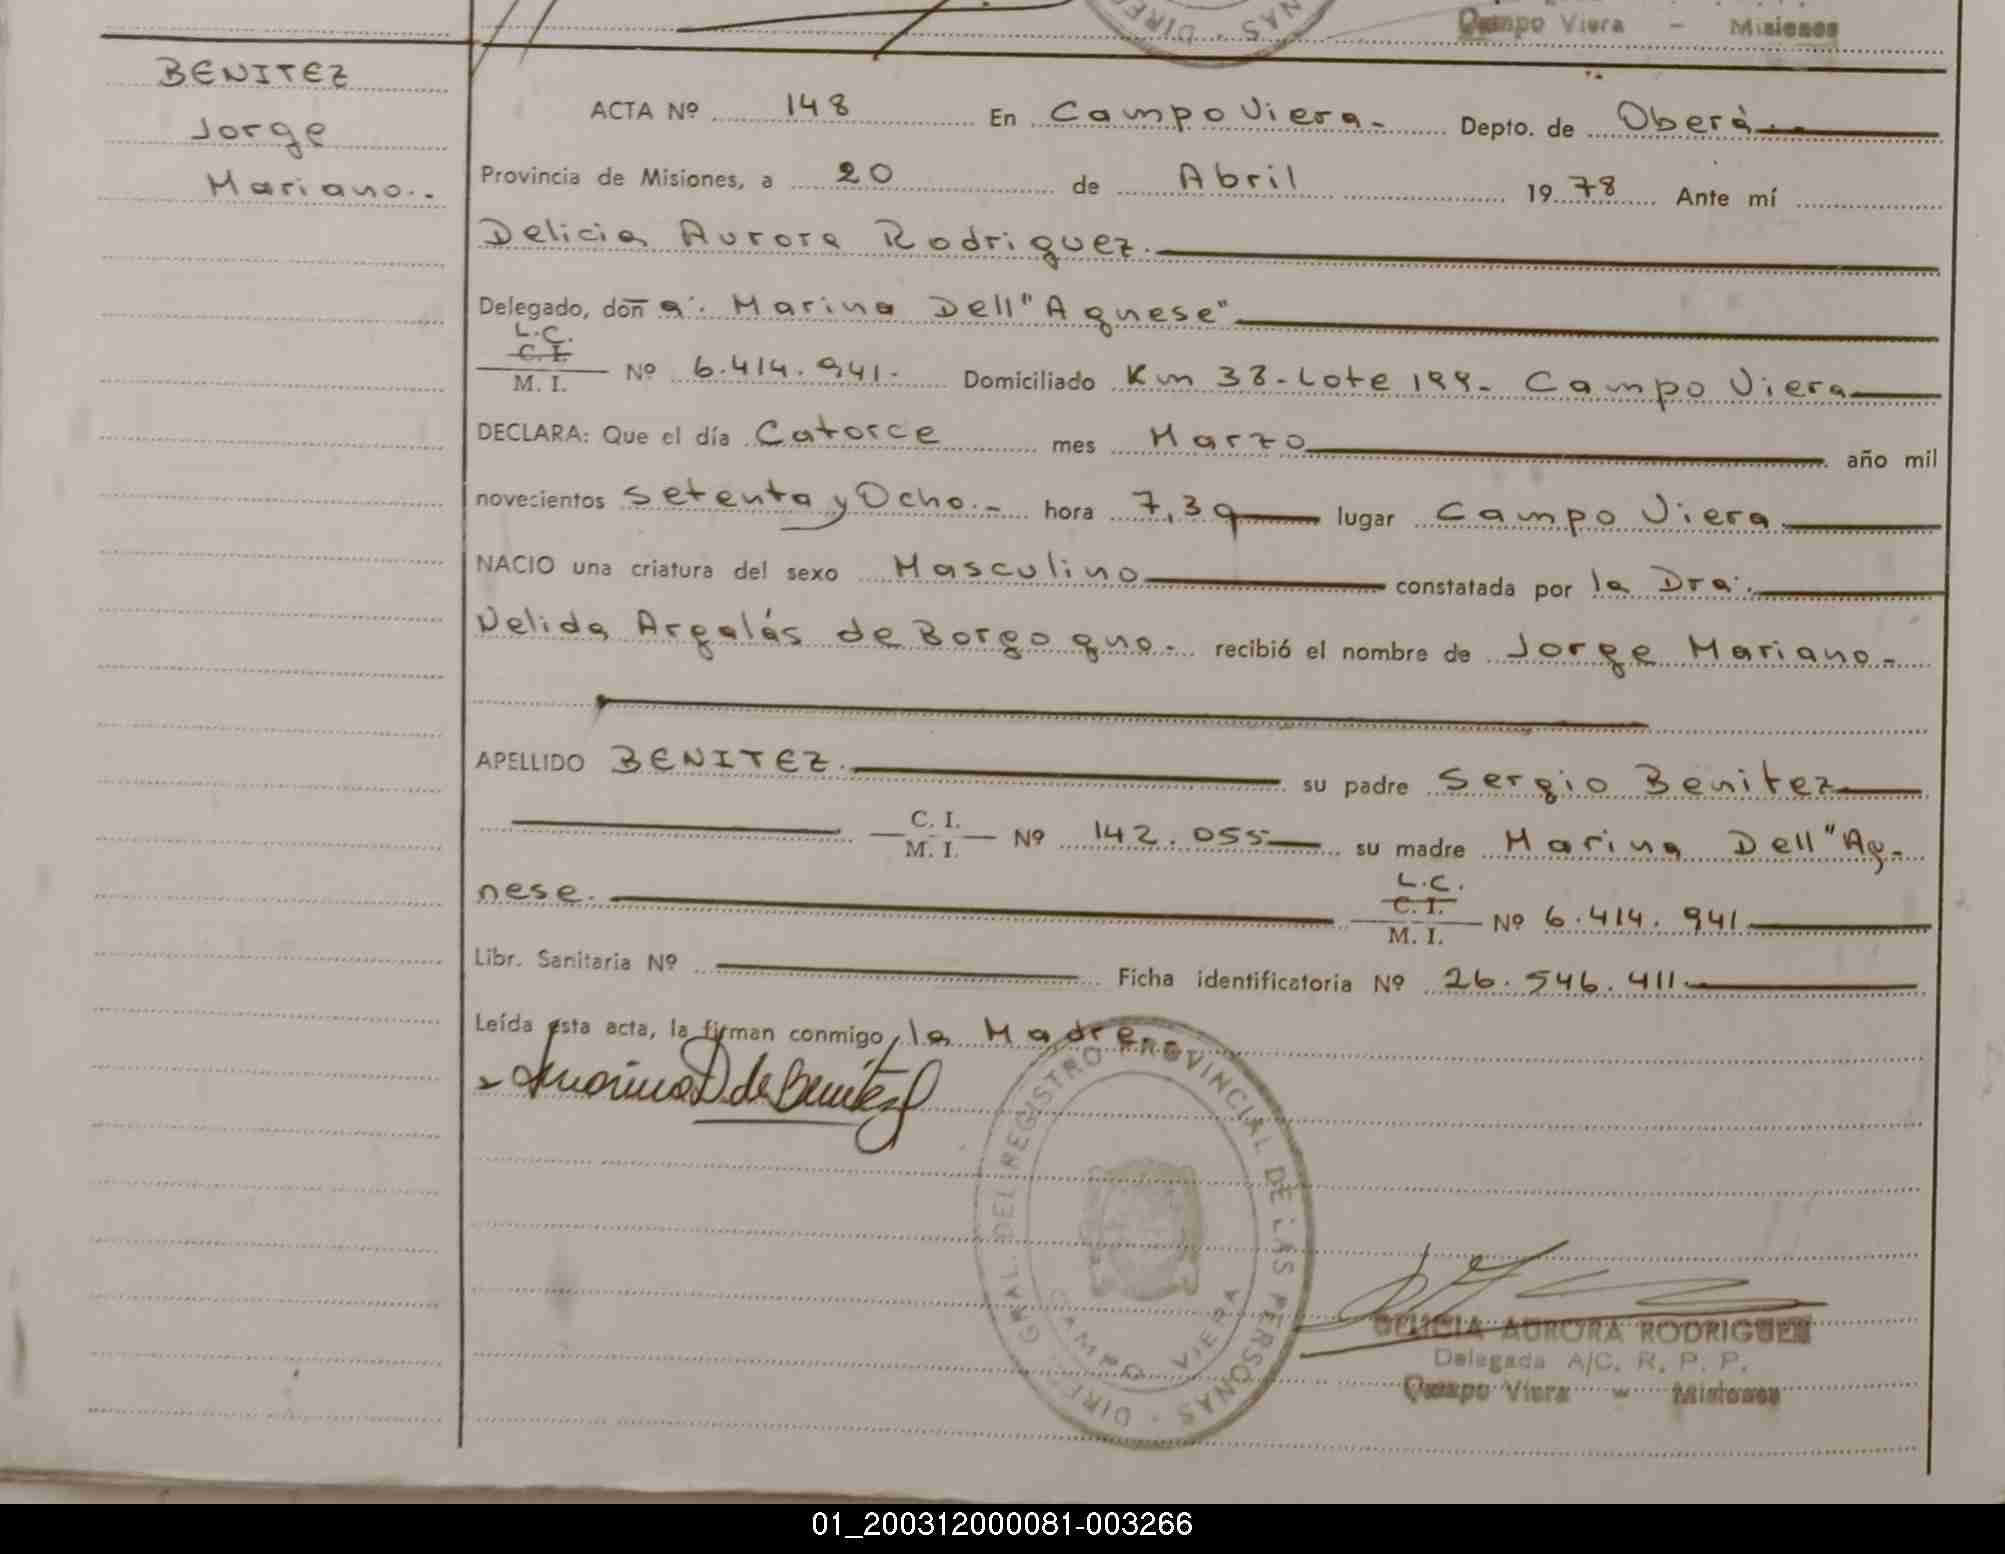 Campo Viera - Misiones
BENITEZ
Jorge
Mariano.-
ACTA Nº 148 En Campo Viera.- Depto. de Oberá.-
Provincia de Misiones, a 20 de Abril 1978 Ante mí
Delicia Aurora Rodriguez.
Delegado, doña. Marina Dell"Agnese"
L.C.
C. I.
M. I. Nº 6.414.941.- Domiciliado Km 38-Lote 199- Campo Viera
DECLARA: Que el día Catorce mes Marzo año mil
novecientos setenta y Ocho.- hora 7,30 lugar Campo Viera
NACIO una criatura del sexo Masculino constatada por la Dra.
Nelida Argalás de Borgogno.- recibió el nombre de Jorge Mariano.-
APELLIDO BENITEZ. su padre Sergio Benitez
C. I.
M. I. Nº 142.055 su madre Marina Dell"Ag-
nese.
L.C.
C. I.
M. I. Nº 6.414.941
Libr. Sanitaria Nº Ficha identificatoria Nº 26.546.411.
Leída esta acta, la firman conmigo, la Madre
Marina D de Benítez
DIRE. GRAL. DEL REGISTRO PROVINCIAL DE LAS PERSONAS
CAMPO VIERA
DELICIA AURORA RODRIGUEZ
Delegada A/C. R. P. P.
Campo Viera - Misiones
01_200312000081-003266